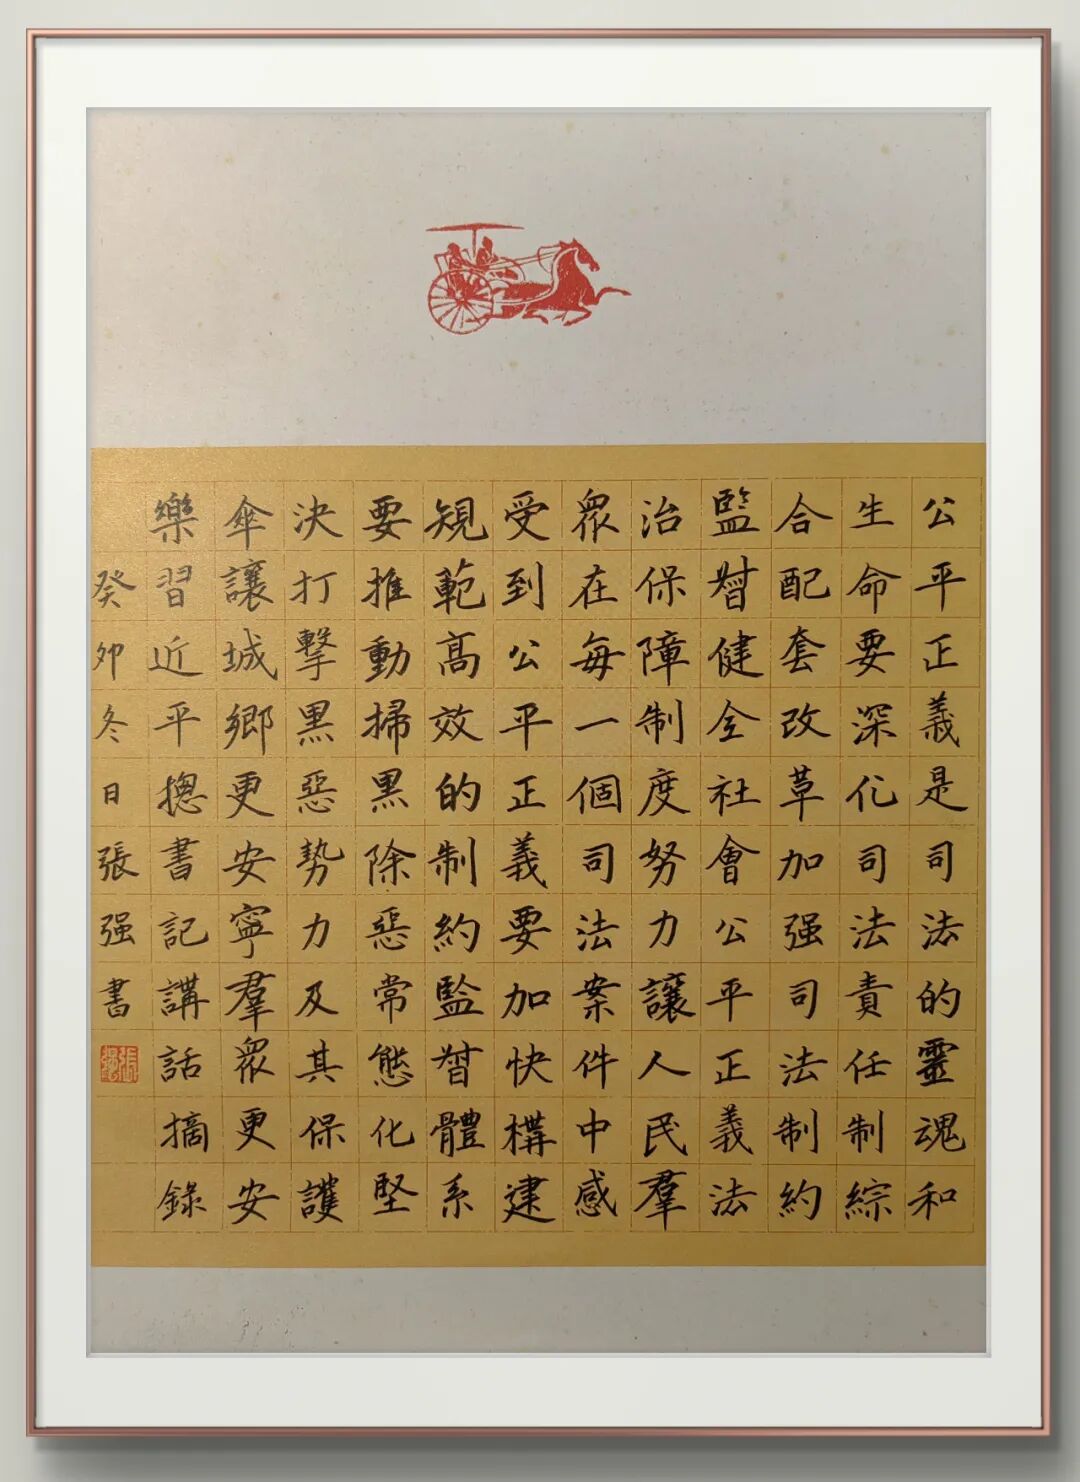 公平正義是司法的靈魂和
生命要深化司法責任制綜
合配套改革加强司法制約
監督健全社會公平正義法
治保障制度努力讓人民羣
眾在每一個司法案件中感
受到公平正義要加快構建
規範高效的制約監督體系
要推動掃黑除惡常態化堅
決打擊黑惡勢力及其保護
傘讓城鄉更安寧羣眾更安
樂習近平總書記講話摘錄
癸卯冬日張强書
張强